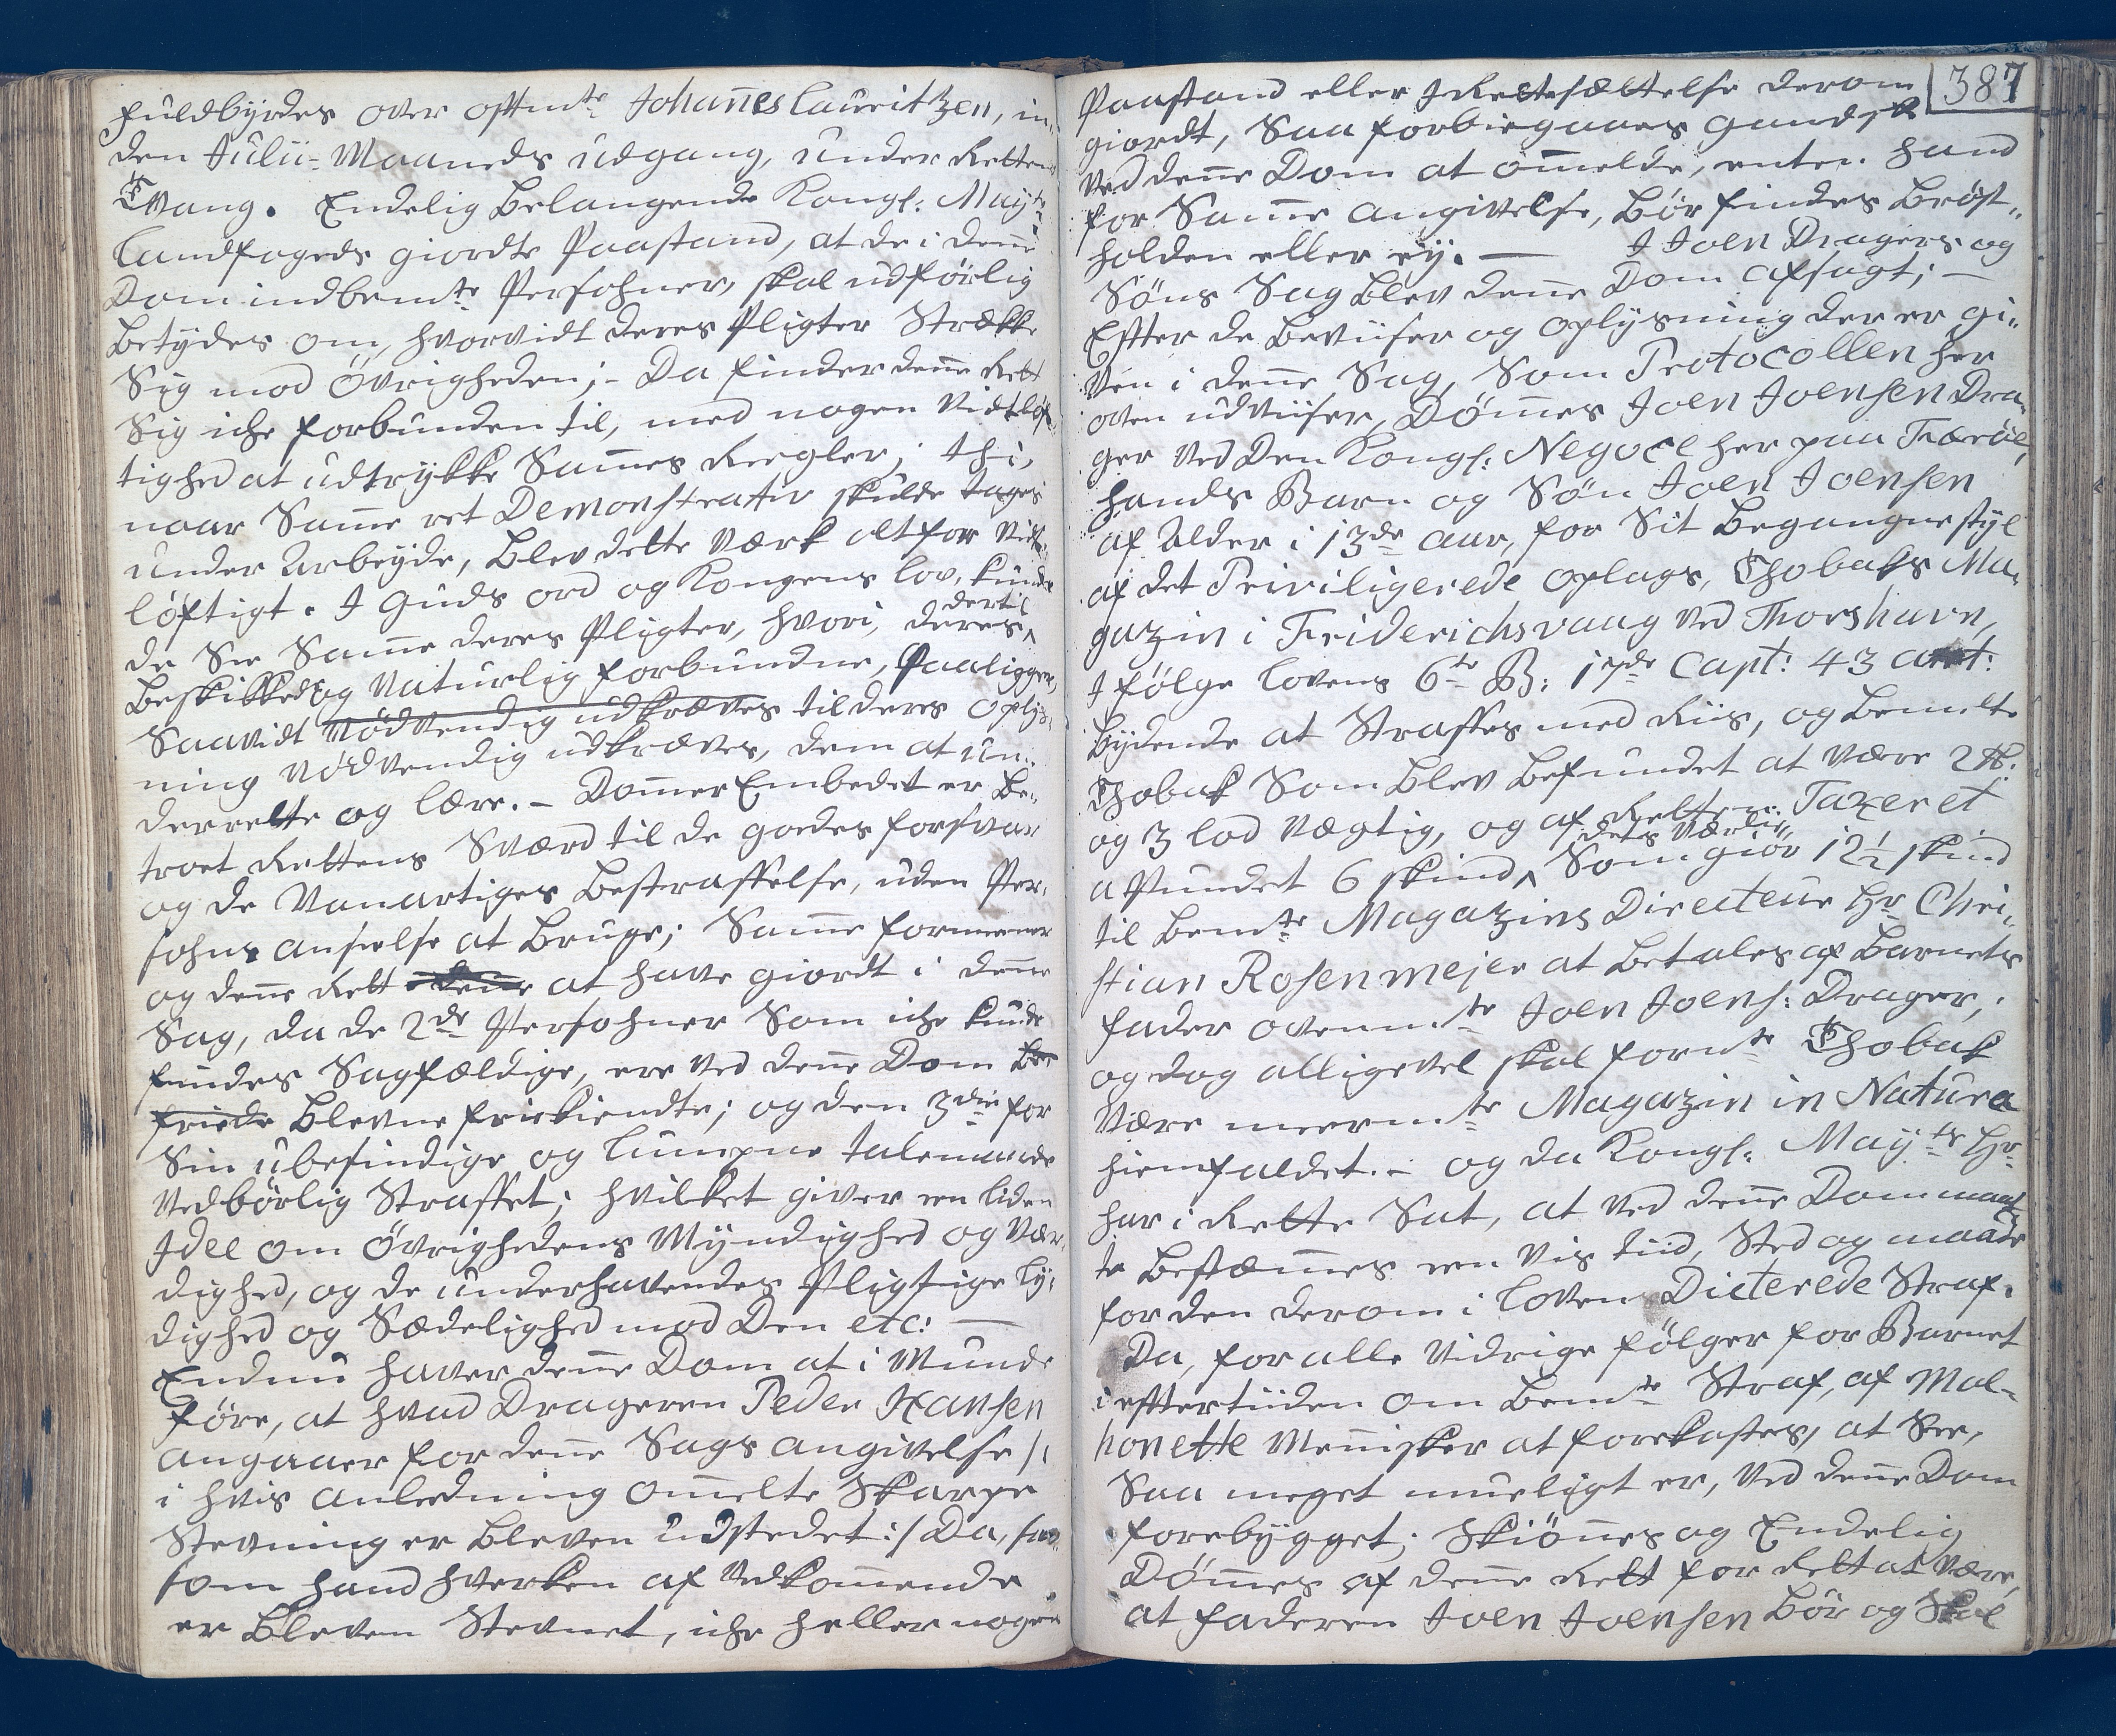 fuldbyrdes over oftmte Johannes Lauritzen, in,,
den Julii-Maaneds udgang, under Rettens
Tvang. Endelig Belangende Kongl: Mayts
Landfogeds giordte Paastand, at de i denne
Dom indbemte Persohner, skal udførlig
Betydes om, hvorvidt deres Pligter Strække
Sig mod Øvrigheden; - Da finder denne Rett
Sig iche forbunden til, med nogen Vidtløf,,
tighed at udtrykke Sammes Reegler; thi,
naar Samme ret Demonstrativ skulde tages
under Arbeyde, Blev dette Værk alt for Vidt,,
løftigt. I Guds ord og Kongens Lov, kund
de See Samme deres Pligter, hvori, deres dertil
Beskikkede og Naturlig forbundne, Paaligger,
Saavidt nødvendig udkræves til deres Oplys,,
ning nødvendig udkræves, dem at un,,
derrette og lære. - Dommer Embedet er Be,,
troet Rettens Sværd til de goedes forsvar
og de Vanartiges Bestraffelse, uden Per,,
sohns anseelse at Bruge; Samme formeener
og denne Rett denne at have giordt i denne
Sag, da de 2de Persohner Som iche kunde
findes Sagfældige, ere ved denne Dom Be
friede Blevne friekiendte; og den 3die for
Sin ubesindige og Lumpne talemaade
Vedbørlig Straffet; hvilket giver een liden
Idee om Øvrighedens Myndighed og Vær,,
dighed, og de underhavendes Pligtige Ly,,
dighed og Sædelighed mod Den etc: —
Endnu haver denne Dom at i Munde
føre, at hvad Drageren Peder Hansen
angaaer for denne Sags angivelse /:
i hvis anledning ommelte Skarpe
Stevning er Bleven udstedet :/ Da, saa,,
som hand hverken af Vedkommende
er Bleven Stevnet, iche heller nogen
387
Paastand eller I Rettesættelse derom
giordt, Saa forbiegaaes gandske
ved denne Dom at ommelde, enten hand
for Samme angivelse, Bør findes Brøst,,
holden eller ey. — I Joen Dragers og
Søns Sag Blev denne Dom afsagt; —
Efter de Beviiser og oplysning der er gi,,
ven i denne Sag, Som Protocollen her
oven udviiser, Dømmes Joen Joensen Dra,,
ger ved Den Kongl: Negoce her paa Færøe,
hands Barn og Søn Joen Joensen
af Alder i 13de aar, for Sit Begangne Styl
af det Priviligerede Oplags, Thobaks Ma,,
gazin i Friderichsvaag ved Thorshavn,
I følge Lovens 6te B: 17de Capt: 43 art:
Lydende at Straffes med Riis, og bemelte
Thobak Som Blev Befundet at være 2 ℔:
og 3 Lod Vægtig, og af Retten Taxeret
a Pundet 6 skind, dets Værdie Som giør 12½ skind
til Bemte Magazins Directeur Hr Chri,,
stian Rosenmejer at Betales af Barnets
fader ovenmte Joen Joens: Drager,
og dog alligevel skal formte Thobak
være meermte Magazin in Natura
hiemfaldet. - og da Kongl: Mayts Hr
har i Rette Sat, at ved denne Dom maat,,
te Bestemmes een Vis tiid, Sted og maade
for den derom i Loven Dicterede Straf.
Da, for alle Vidrige følger for Barnet
i eftertiiden om Bemte Straf, af Mal-
honette Mennisker at forekastes, at See,
Saa meget mueligt er, ved denne Dom
forebygget; Skiønnes og Endelig
Dømmes af denne Rett for Rett at være,
at faderen Joen Joensen Bør og Skal